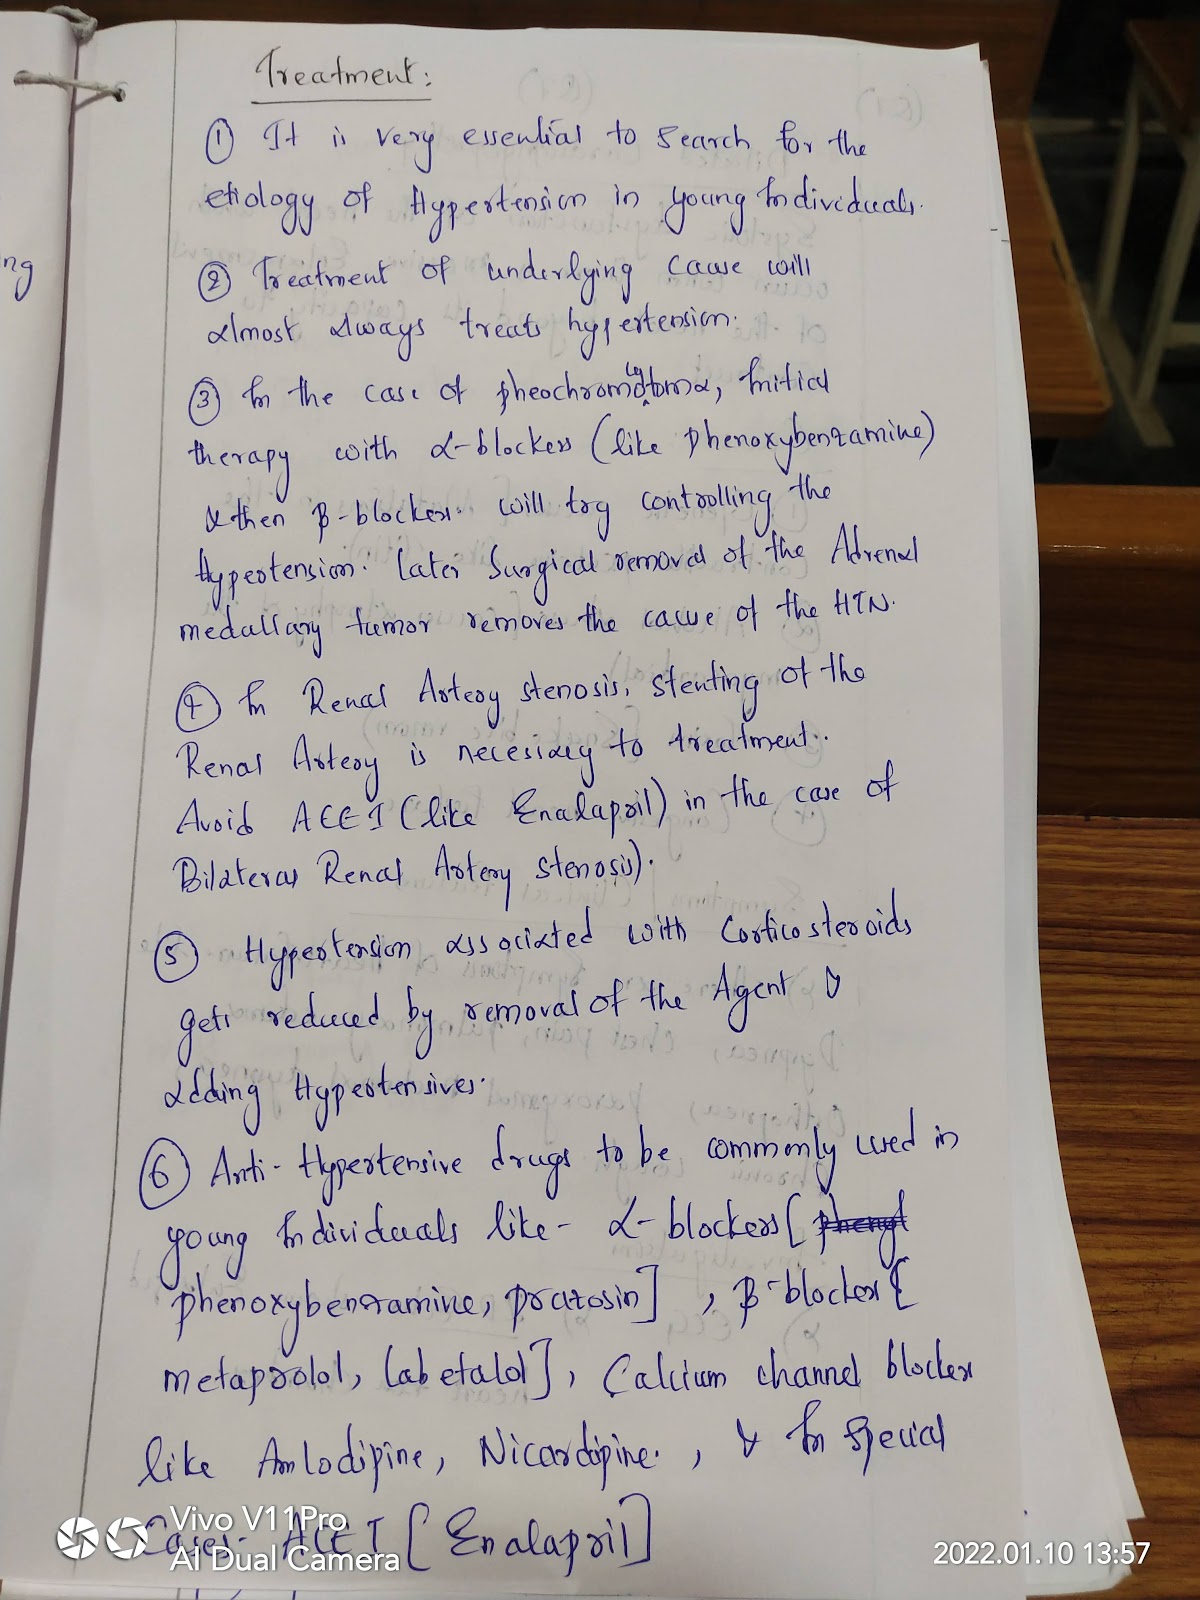 Treatment:
① It is very essential to Search for the
etiology of Hypertension in young Individuals.
ng
② Treatment of underlying cause will
almost always treats hypertension.
③ In the case of pheochromocytoma, Initial
therapy with α-blockers (like Phenoxybenzamine)
& then β-blockers. will try controlling the
Hypertension. Later Surgical removal of the Adrenal
medullary tumor removes the cause of the HTN.
④ In Renal Artery stenosis, stenting of the
Renal Artery is necessary to treatment..
Avoid ACEI (like Enalapril) in the case of
Bilateral Renal Artery stenosis).
⑤ Hypertension associated with Corticosteroids
gets reduced by removal of the Agent &
adding Hypertensives.
⑥ Anti-Hypertensive drugs to be commonly used in
young Individuals like - α-blockers [
phenoxybenzamine, prazosin] , β-blockers [
metaprolol, labetalol], Calcium channel blockers
like Amlodipine, Nicardipine. , & In special
Cases- ACEI [Enalapril]
Vivo V11Pro
AI Dual Camera
2022.01.10 13:57